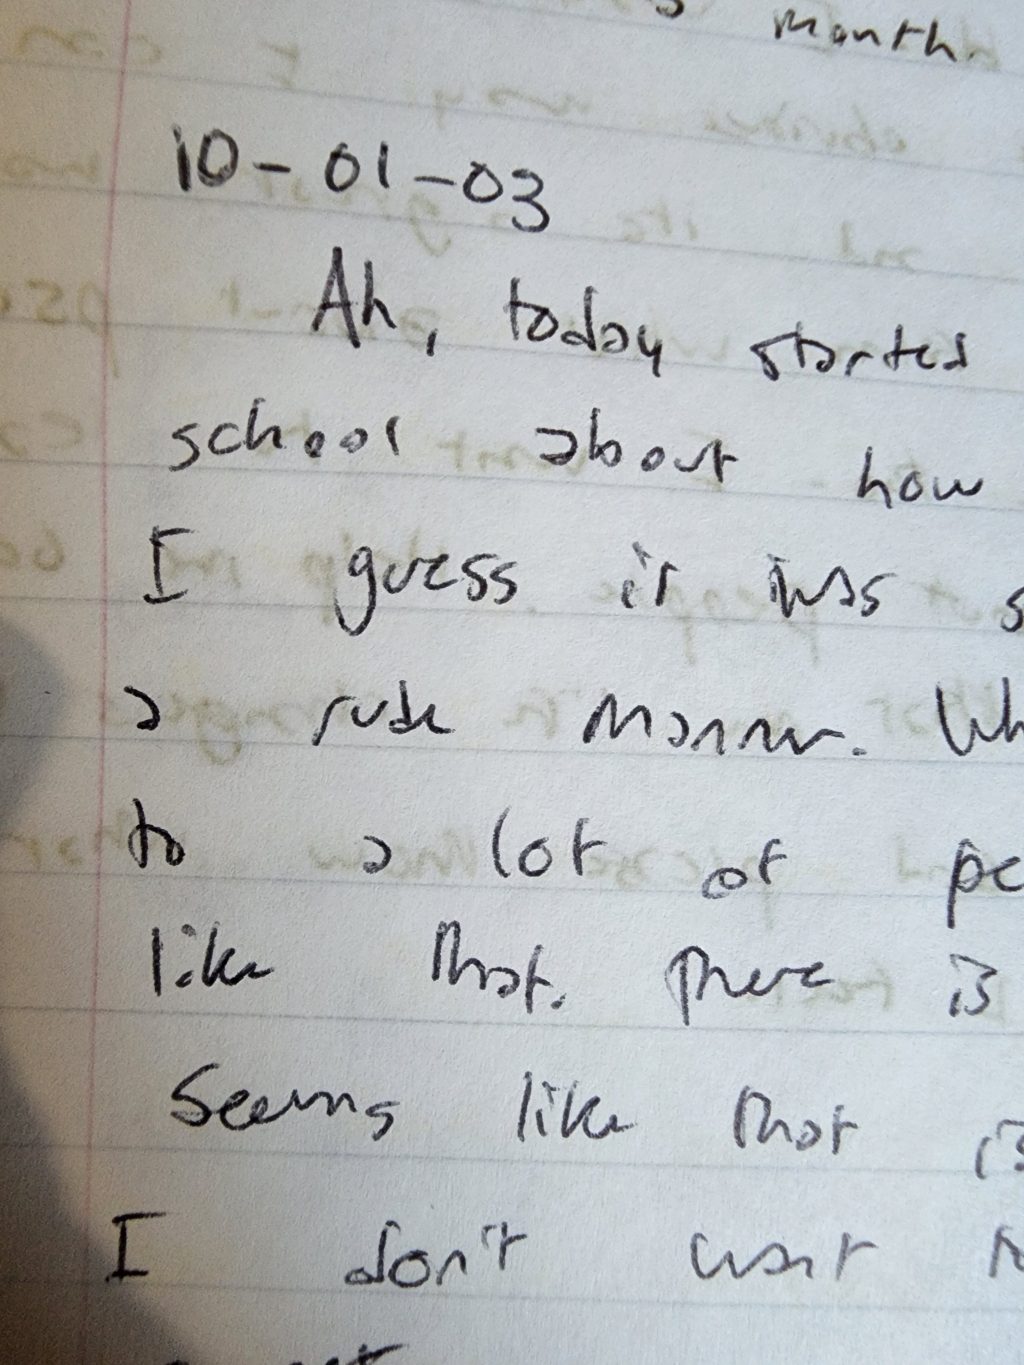 month.
10-01-03
Ah, today started
school about how
I guess it was
a rude manner.
to a lot of
like that. There is
seems like that
I don't want